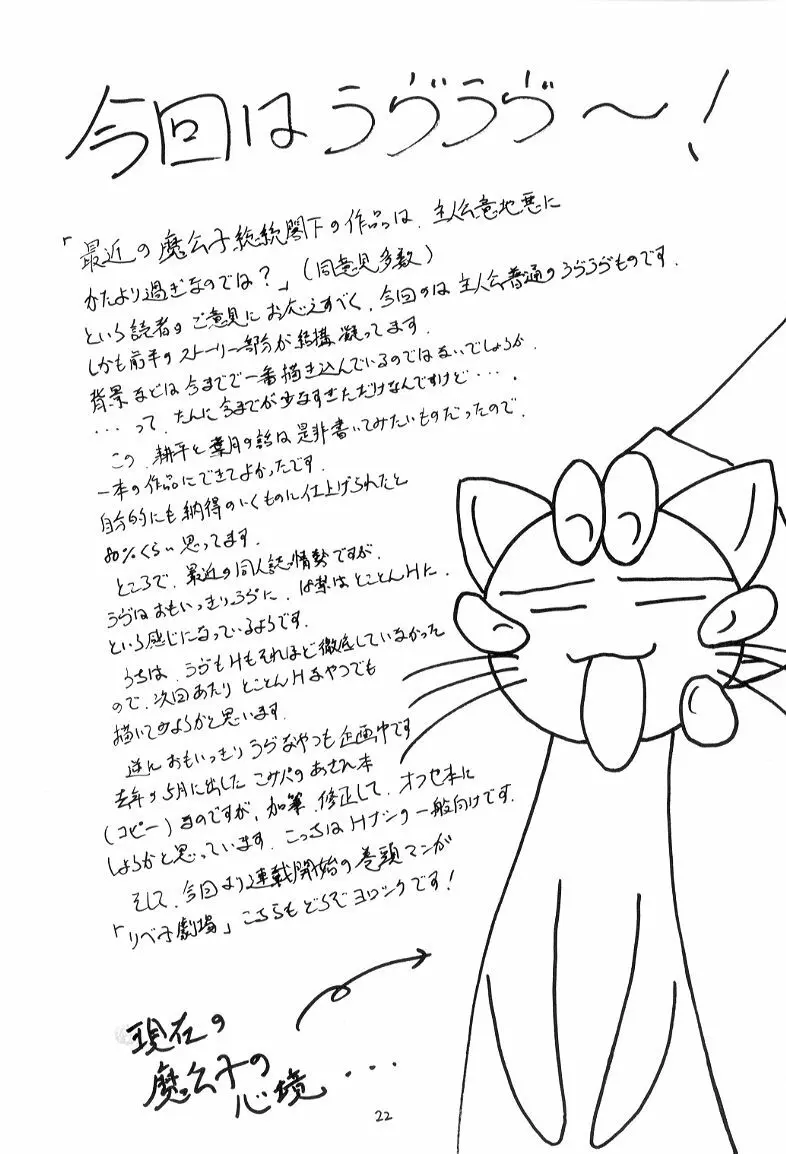 今回はうヴうヴ〜！
「最近の魔公子総統閣下の作品は、主人公意地悪に
かたより過ぎなのでは？」（同意見多数）
という読者のご意見にお応えすべく、今回のは主人公普通のうヴうヴものです.
しかも前半のストーリー部分が結構凝ってます.
背景などは今までで一番描き込んでいるのではないでしょうか.
・・・って、たんに今までが少なすぎただけなんですけど・・・.
この、耕平と葉月の話は是非書いてみたいものだったので、
一本の作品にできてよかったです.
自分的にも納得のいくものに仕上げられたと
80%くらい思ってます.
ところで、最近の同人誌情勢ですが、
うヴはおもいっきりうヴに、Hはとことん Hに、
という感じになっているようです.
うちは、うヴもHもそれほど徹底していなかった
ので、次回あたりとことんHなやつでも
描いてみようかと思います.
逆におもいっきりうヴなやつも企画中です
去年の5月に出したこみパのあさひ本
（コピー）なのですが、加筆、修正して、オフセ本に
しようかと思っています. こっちはHナシの一般向けです.
そして、今回より連載開始の巻頭マンガ
「リベ子劇場」こちらもどうぞヨロシクです！
現在の
魔公子の
心境・・・
22